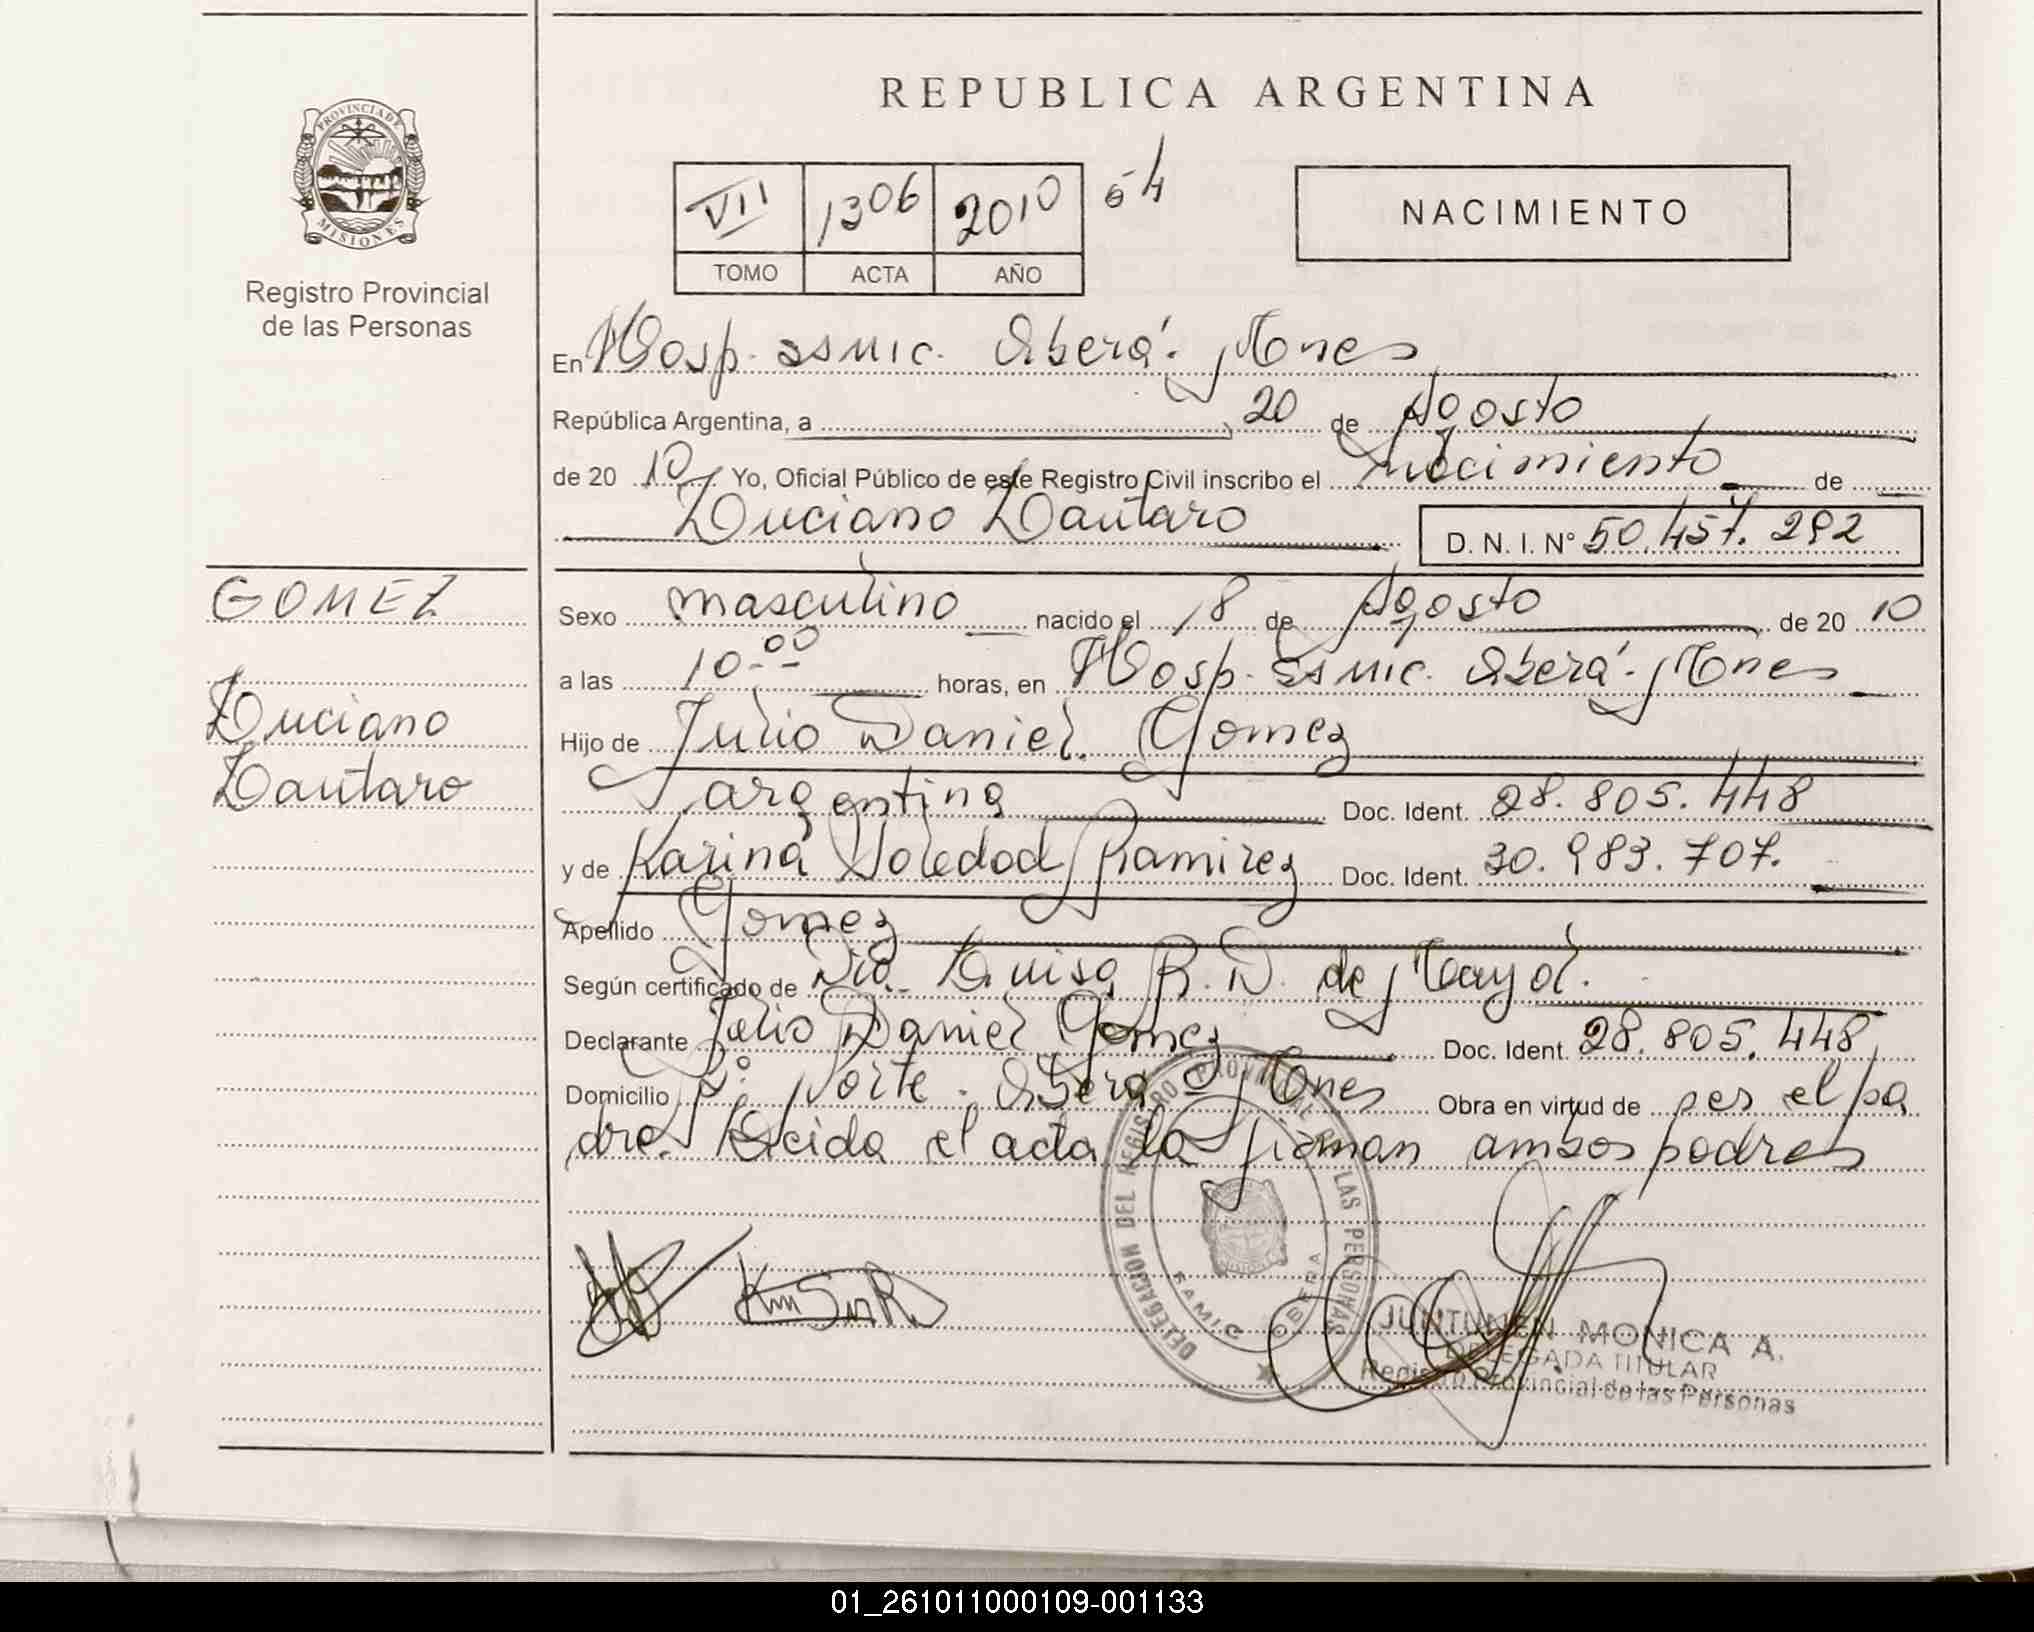 REPUBLICA ARGENTINA
PROVINCIA DE MISIONES
Registro Provincial
de las Personas
VII 1306 2010 54
TOMO ACTA AÑO
NACIMIENTO
En Hosp. ssmic. Oberá. Mnes
República Argentina, a 20 de Agosto
de 20 10 Yo, Oficial Público de este Registro Civil inscribo el nacimiento de
Luciano Lautaro D. N. I. Nº 50.457.292
GOMEZ
Luciano
Lautaro
Sexo masculino nacido el 18 de Agosto de 20 10
a las 10-00 horas, en Hosp. ssmic. Oberá. Mnes
Hijo de Julio Daniel Gomez
argentina Doc. Ident. 28.805.448
y de Karina Soledad Ramirez Doc. Ident. 30.983.707.
Apellido Gomez
Según certificado de Dra. Luisa R. D. de Mayol.
Declarante Julio Daniel Gomez Doc. Ident. 28.805.448
Domicilio Bº Norte. Oberá - Mnes Obra en virtud de ser el pa
dre. Leida el acta la firman ambos padres
DELEGACION DEL REGISTRO PROVINCIAL DE LAS PERSONAS
SAMIC OBERA
JUNTUNEN MONICA A.
DELEGADA TITULAR
Registro Provincial de las Personas
01_261011000109-001133